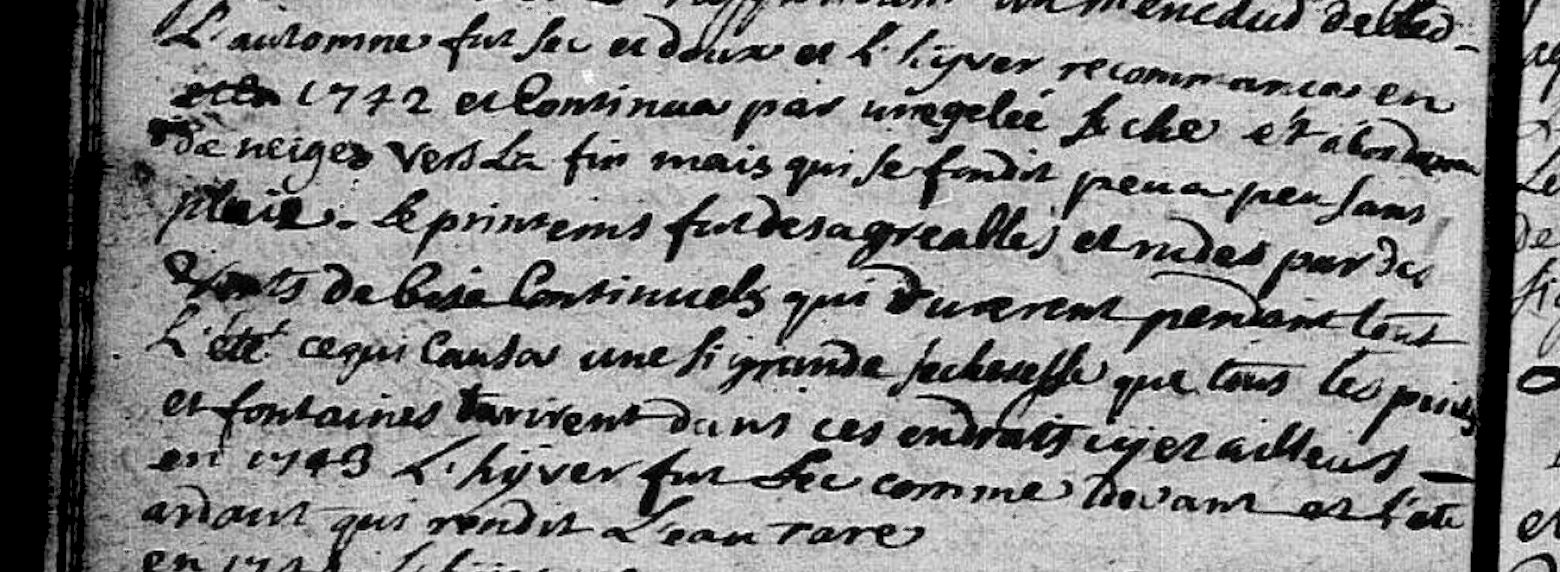 L'automne fut sec et doux et L'hyver recommança en
1742 et Continua par une gelée seche et abondance
de neiges vers La fin mais qui se fondit peu a peu sans
pluie. Le printems fut desagreables et rudes par des
vents de bise Continuels qui durerent pendant tout
L'été ce qui Causa une si grande secheresse que tous les puits
et fontaines tarirent dans ces endroits icy et ailleurs
en 1743 L'hyver fut sec comme devant et l'ete
ardant qui rendit L'eau rare